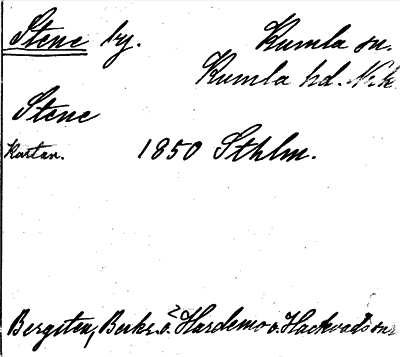 Stene by. Kumla sn.
Kumla hd. Nrk
Stene
Kartan. 1850 Sthlm.
Bergsten, Beskr. ö. Hardemo o. Hackvads snr